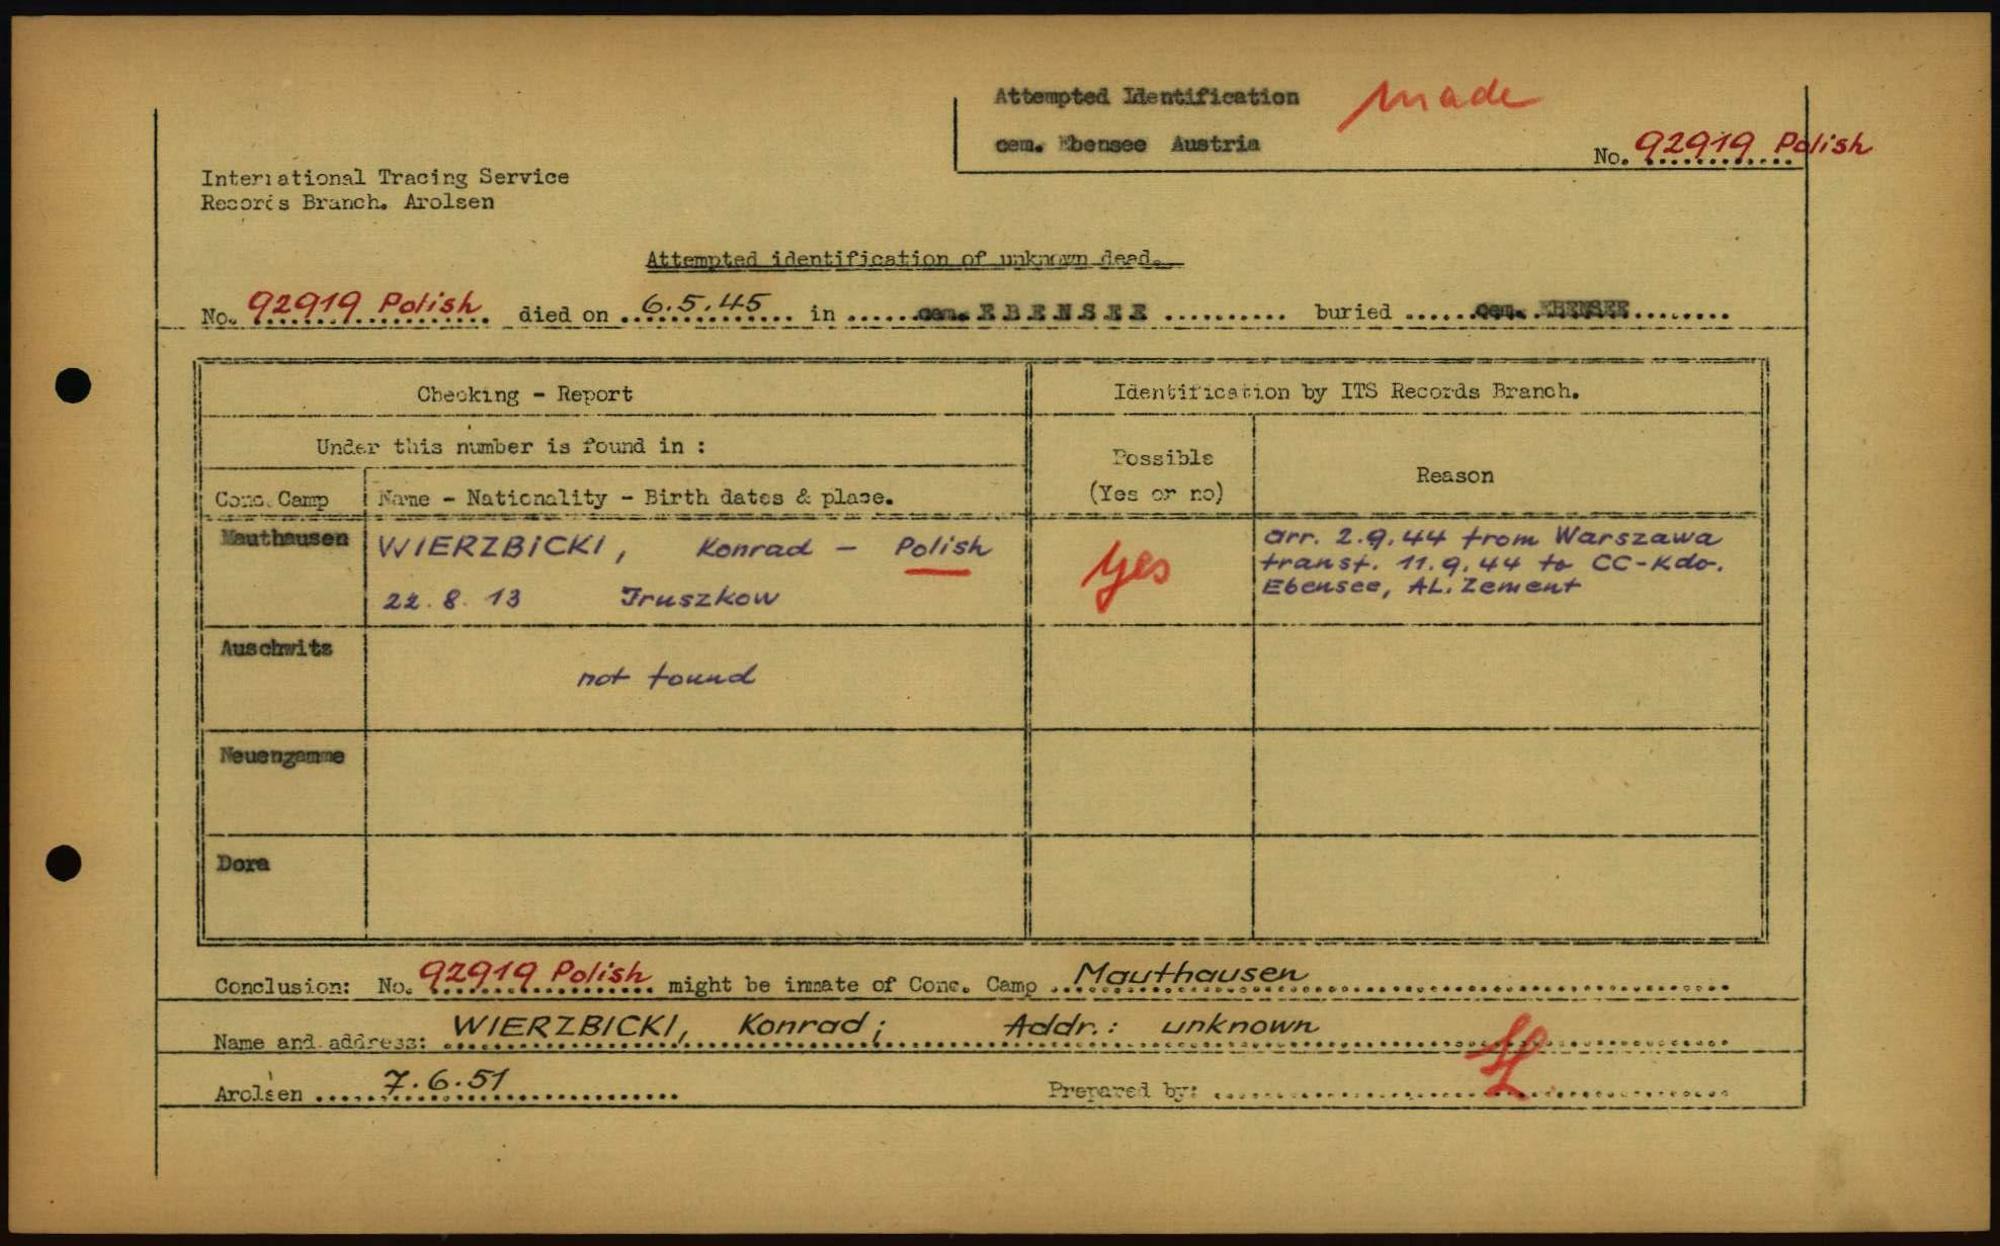 Attempted Identification made
cem. Ebensee Austria
No. 92919 Polish
International Tracing Service
Records Branch. Arolsen
Attempted identification of unknown dead.
No. 92919 Polish died on 6.5.45 in cem. EBENSEE buried cem. EBENSEE
Checking - Report
Identification by ITS Records Branch.
Under this number is found in :
Possible
(Yes or no)
Reason
Conc. Camp
Name - Nationality - Birth dates & place.
Mauthausen
WIERZBICKI, Konrad - Polish
22. 8. 13 Truszkow
yes
arr. 2.9.44 from Warszawa
transf. 11.9.44 to CC-Kdo.
Ebensee, AL. Zement
Auschwitz
not found
Neuengamme
Dora
Conclusion: No. 92919 Polish might be inmate of Conc. Camp Mauthausen
Name and address: WIERZBICKI, Konrad; Addr.: unknown
Arolsen 7.6.51 Prepared by: